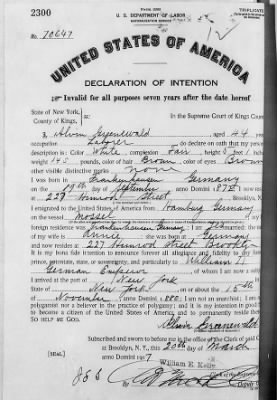 2300
U. S. DEPARTMENT OF LABOR
TRIPLICATE
No. 20647
UNITED STATES OF AMERICA
DECLARATION OF INTENTION
Invalid for all purposes seven years after the date hereof
State of New York,
County of Kings, In the Supreme Court of Kings County
I, Alwin Greenewald, aged 44 years,
occupation Laborer, do declare on oath that my personal
description is: Color White, complexion Fair, height 5 feet
145 pounds, color of hair Brown, color of eyes Brown
other visible distinctive marks none
I was born in Frankenhausen Germany
on the 19th day of September, anno Domini 187; I now reside
at 227 Himrod Street, Brooklyn, N.
I emigrated to the United States of America from Hamburg Germany
on the vessel
foreign residence was Frankenhausen Germany; I am married; the name
of my wife is Annie; she was born at Germany
and now resides at 227 Himrod Street Brooklyn
It is my bona fide intention to renounce forever all allegiance and fidelity to any foreign
prince, potentate, state, or sovereignty, and particularly to William II
German Emperor, of whom I am now a
I arrived at the port of New York, in the
State of New York, on or about the 15th day
of November, anno Domini; I am not an anarchist; I am not a
polygamist nor a believer in the practice of polygamy; and it is my intention in good
to become a citizen of the United States of America and to permanently reside therein:
SO HELP ME GOD.
Alwin Greenewald
Subscribed and sworn to before me in the office of the Clerk of said Court
at Brooklyn, N. Y., this 20th day of March
[SEAL] anno Domini 1917
William E. Kelly
By